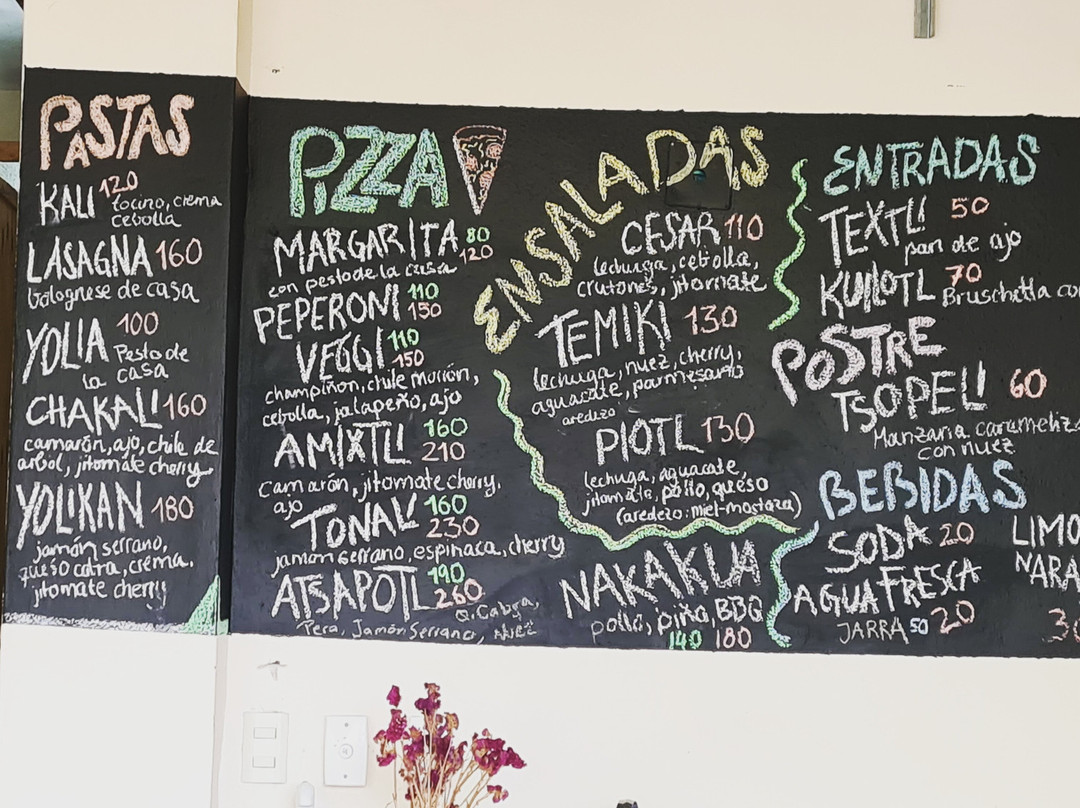 PASTAS
KALI 120
tocino, crema
cebolla
LASAGNA 160
bolognese de casa
YOLIA 100
Pesto de
la casa
CHAKALI 160
camarón, ajo, chile de
arbol, jitomate cherry
YOLIKAN 180
jamón serrano,
queso cabra, crema,
jitomate cherry
PIZZA
MARGARITA 80
120
con pesto de la casa
PEPERONI 110
150
VEGGI 110
150
champiñon, chile morron,
cebolla, jalapeño, ajo
AMIXTLI 160
210
camarón, jitomate cherry,
ajo
TONALI 160
230
jamón serrano, espinaca, cherry
ATSAPOTL 190
260
Q. Cabra,
Pera, Jamón Serrano, Nuez
ENSALADAS
CESAR 110
lechuga, cebolla,
crutones, jitomate
TEMIKI 130
lechuga, nuez, cherry,
aguacate, parmesano
aredezo
PIOTL 130
lechuga, aguacate,
jitomate, pollo, queso
(aredezo: miel-mostaza)
NAKAKUA
pollo, piña, BBQ
140 180
ENTRADAS
TEXTLI 50
pan de ajo
KUILOTL 70
Bruschetta con
POSTRE
TSOPELI 60
Manzana carameliz
con nuez
BEBIDAS
SODA 20
AGUA FRESCA
JARRA 50 20
LIMO
NARA